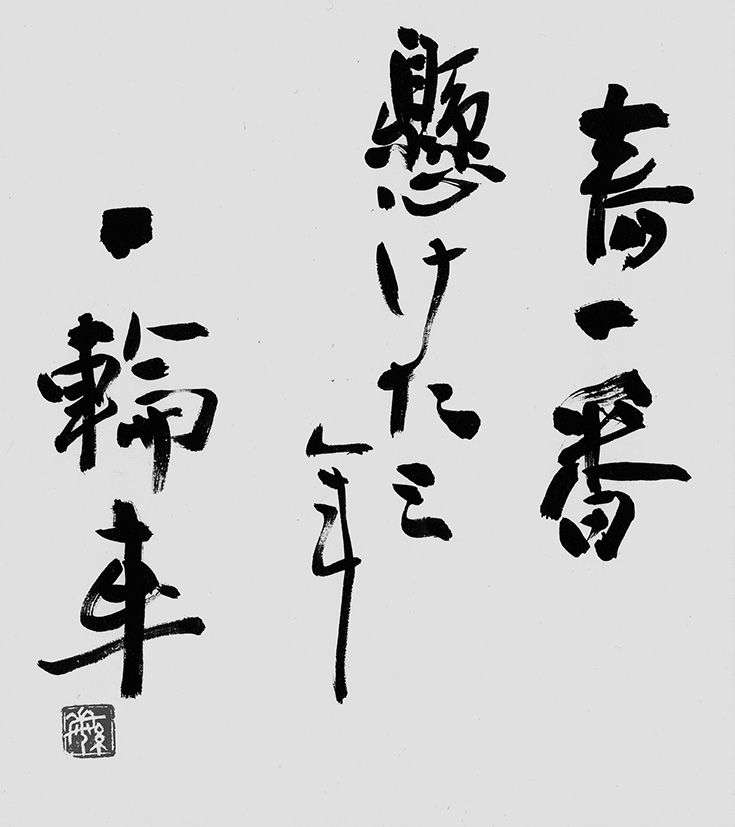 春一番
懸けた三年
一輪車